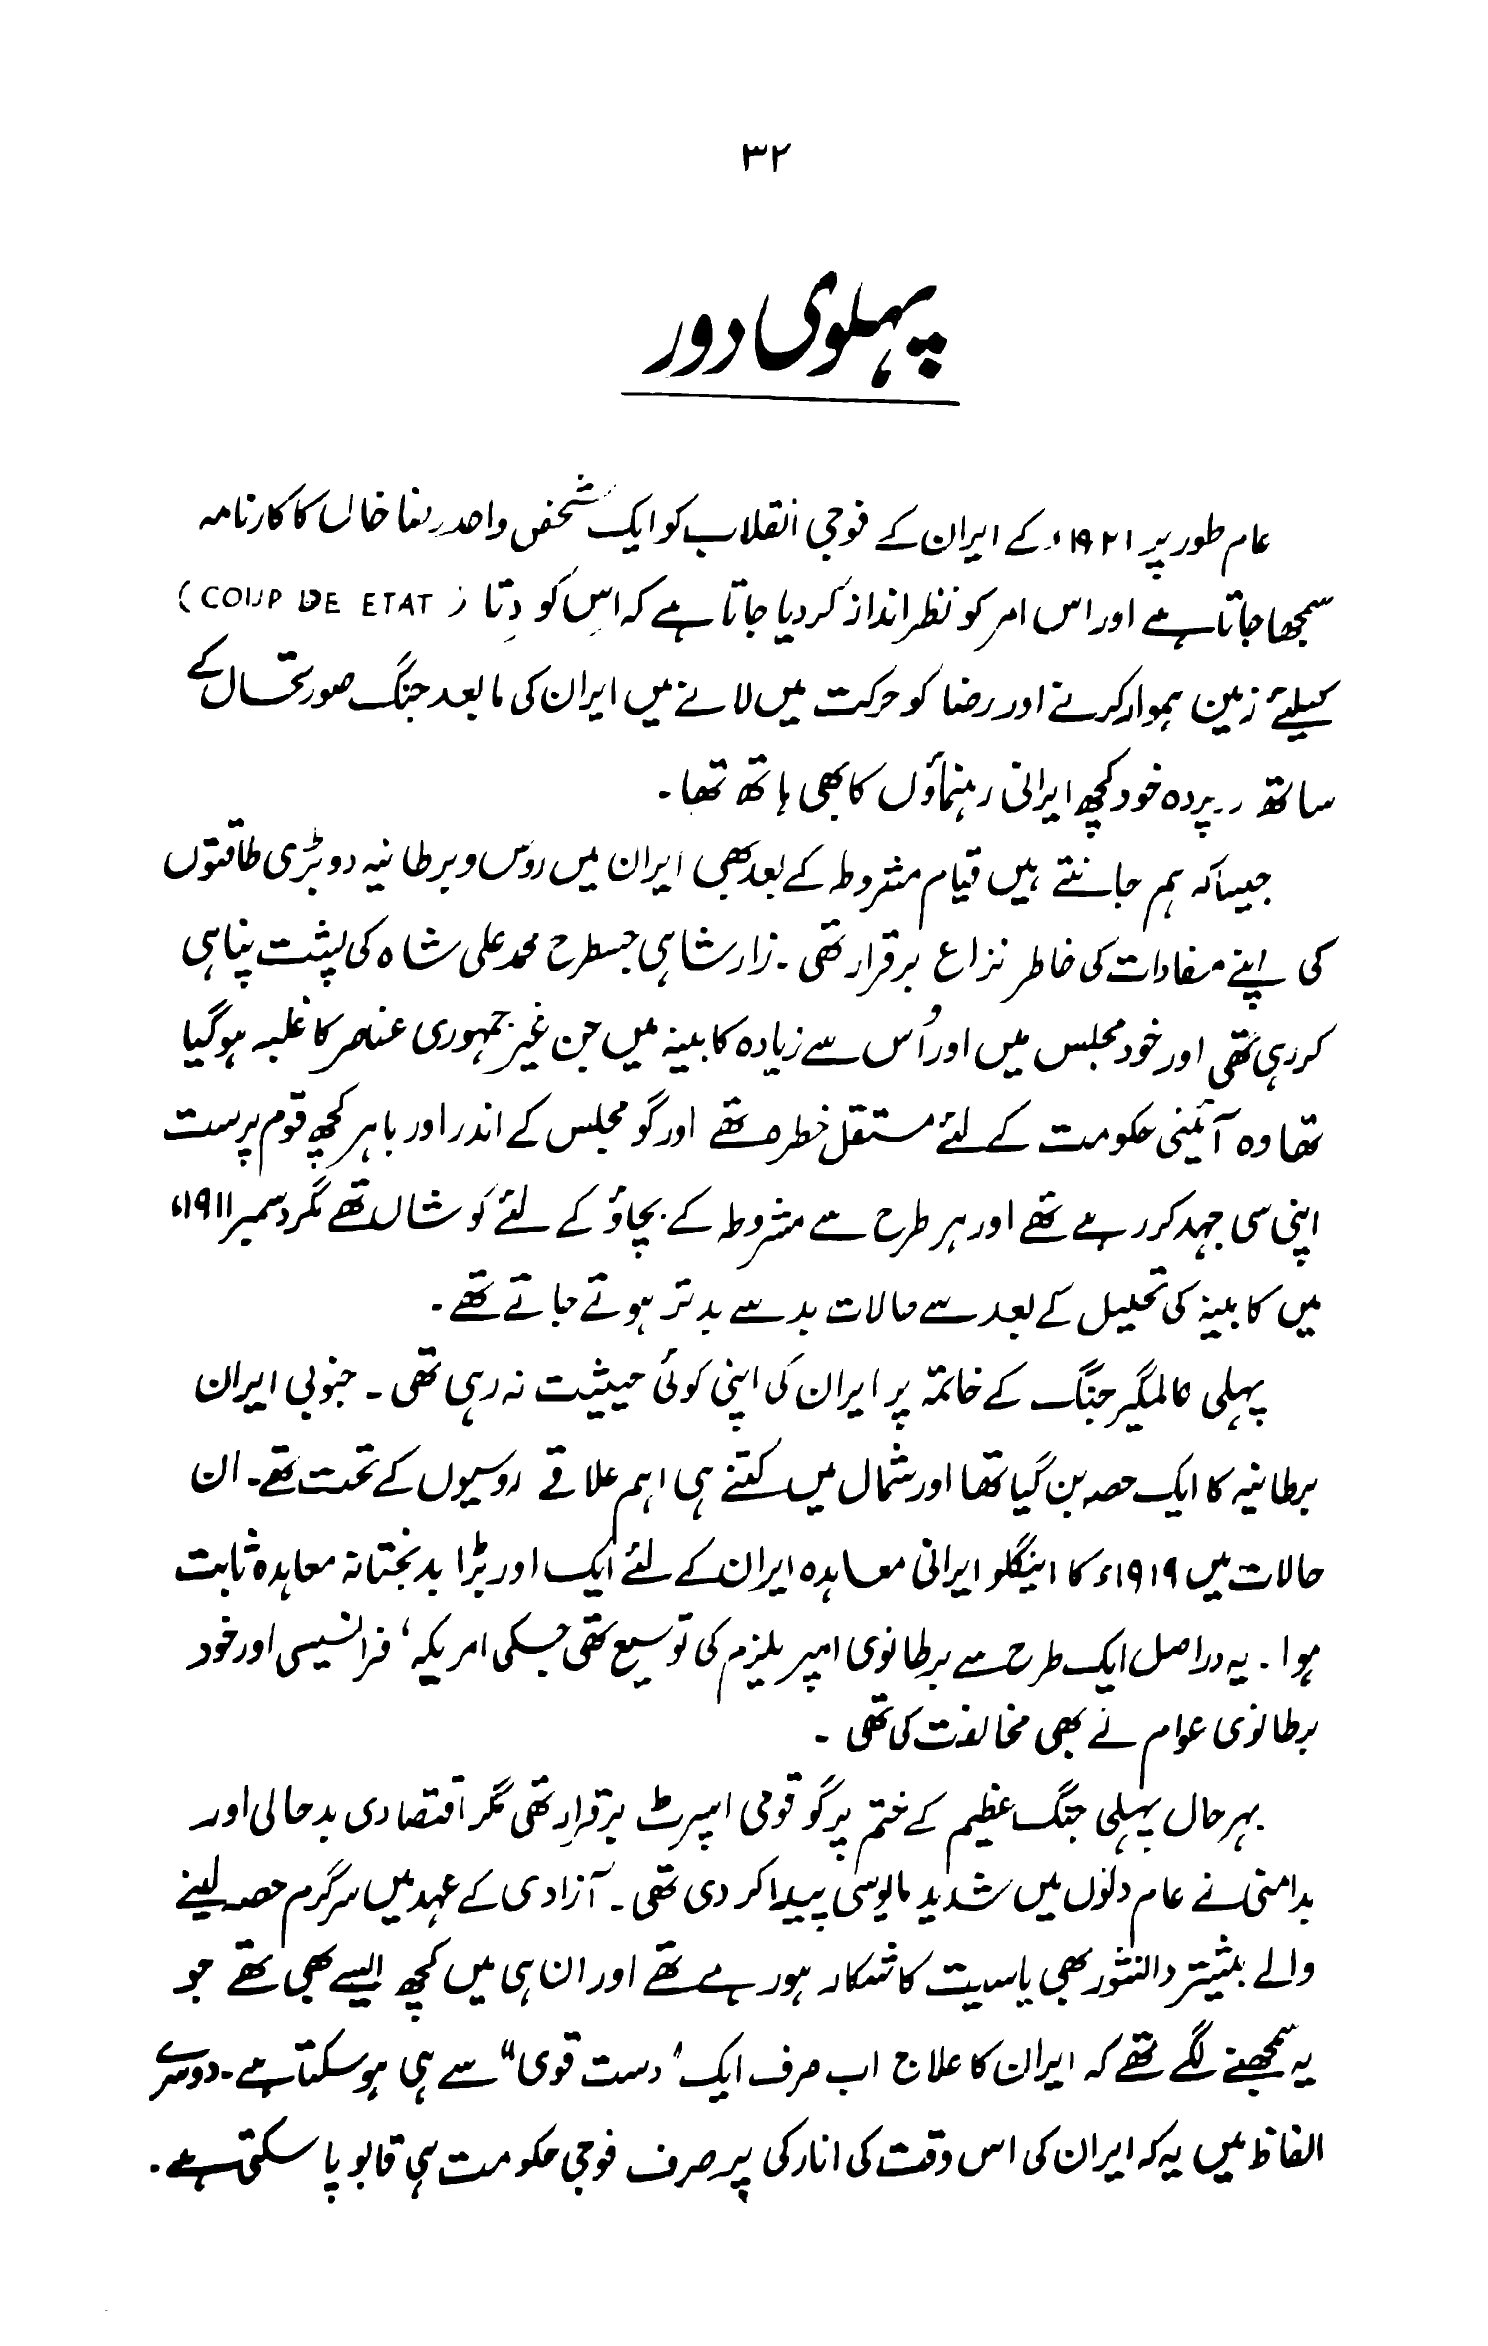 ۳۲
پہلوی دور
عام طور پر ۱۹۲۱ء کے ایران کے فوجی انقلاب کو ایک شخص واحد رضا خاں کا کارنامہ
سمجھا جاتا ہے اور اس امر کو نظر انداز کر دیا جاتا ہے کہ اس کو دتا (COUP DE ETAT)
کیلئے زمین ہموار کرنے اور رضا کو حرکت میں لانے میں ایران کی مابعد جنگ صورتحال کے
ساتھ پردہ خود کچھ ایرانی رہنماؤں کا بھی ہاتھ تھا۔
جیسا کہ ہم جانتے ہیں قیام مشروطہ کے بعد بھی ایران میں روس و برطانیہ دو بڑی طاقتوں
کی اپنے مفادات کی خاطر نزاع برقرار تھی۔ زار شاہی جسطرح محمد علی شاہ کی پشت پناہی
کر رہی تھی اور خود مجلس میں اور اُس سے زیادہ کابینہ میں جن غیر جمہوری عناصر کا غلبہ ہو گیا
تھا وہ آئینی حکومت کے لئے مستقل خطرہ تھے اور گو مجلس کے اندر اور باہر کچھ قوم پرست
اپنی سی جہد کر رہے تھے اور ہر طرح سے مشروطہ کے بچاؤ کے لئے کوشاں تھے مگر دسمبر ۱۹۱۱ء
میں کابینہ کی تحلیل کے بعد سے حالات بد سے بدتر ہوتے جاتے تھے۔
پہلی عالمگیر جنگ کے خاتمہ پر ایران کی اپنی کوئی حیثیت نہ رہی تھی۔ جنوبی ایران
برطانیہ کا ایک حصہ بن گیا تھا اور شمال میں کتنے ہی اہم علاقے روسیوں کے تحت تھے۔ ان
حالات میں ۱۹۱۹ء کا اینگلو ایرانی معاہدہ ایران کے لئے ایک اور بڑا بدبختانہ معاہدہ ثابت
ہوا۔ یہ دراصل ایک طرح سے برطانوی امپیریلزم کی توسیع تھی جسکی امریکہ، فرانسیسی اور خود
برطانوی عوام نے بھی مخالفت کی تھی۔
بہر حال پہلی جنگ عظیم کے ختم پر گو قومی اسپرٹ برقرار تھی مگر اقتصادی بدحالی اور
بدامنی نے عام دلوں میں شدید مایوسی پیدا کر دی تھی۔ آزادی کے عہد میں سرگرم حصہ لینے
والے بیشتر دانشور بھی یاسیت کا شکار ہو رہے تھے اور ان ہی میں کچھ ایسے بھی تھے جو
یہ سمجھنے لگے تھے کہ ایران کا علاج اب صرف ایک "دست قوی" سے ہی ہو سکتا ہے۔ دوسرے
الفاظ میں یہ کہ ایران کی اس وقت کی انارکی پر صرف فوجی حکومت ہی قابو پا سکتی ہے۔